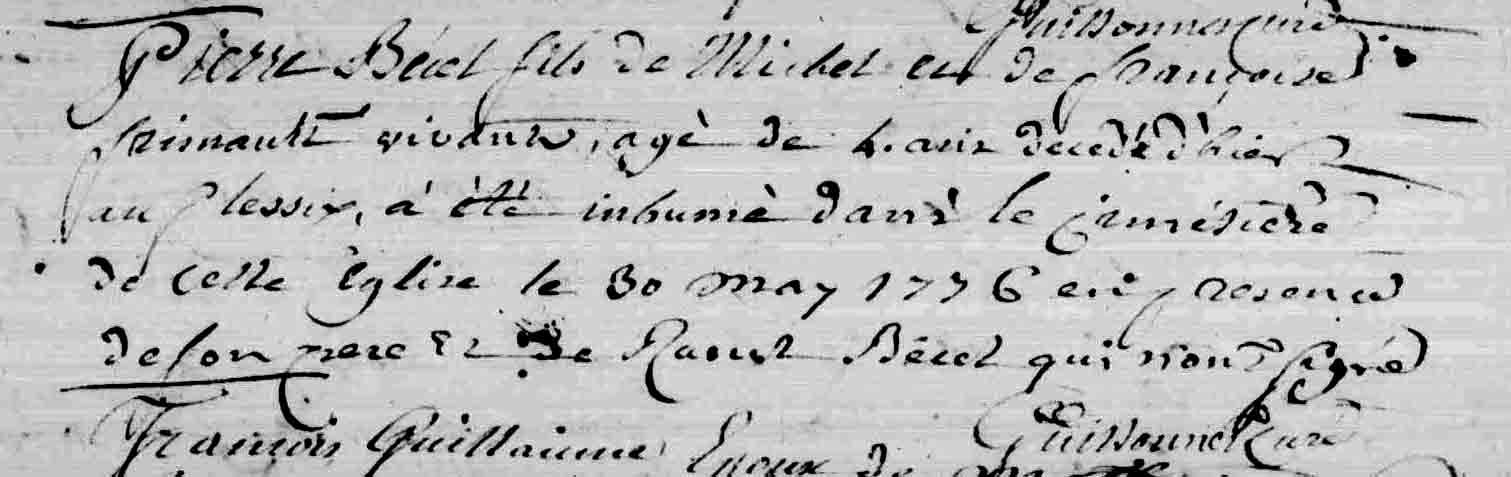 Guissonneau curé
Pierre Bécel fils de Michel et de françoise
vivants, agè de 4. ans decedé d'hier
au plessix, à été inhumè dans le cimétiére
de cette Eglise le 30 may 1776 en presence
de son pere Et de Raoul Bécel qui n'ont signé
Curé
François Guillaume Epoux de